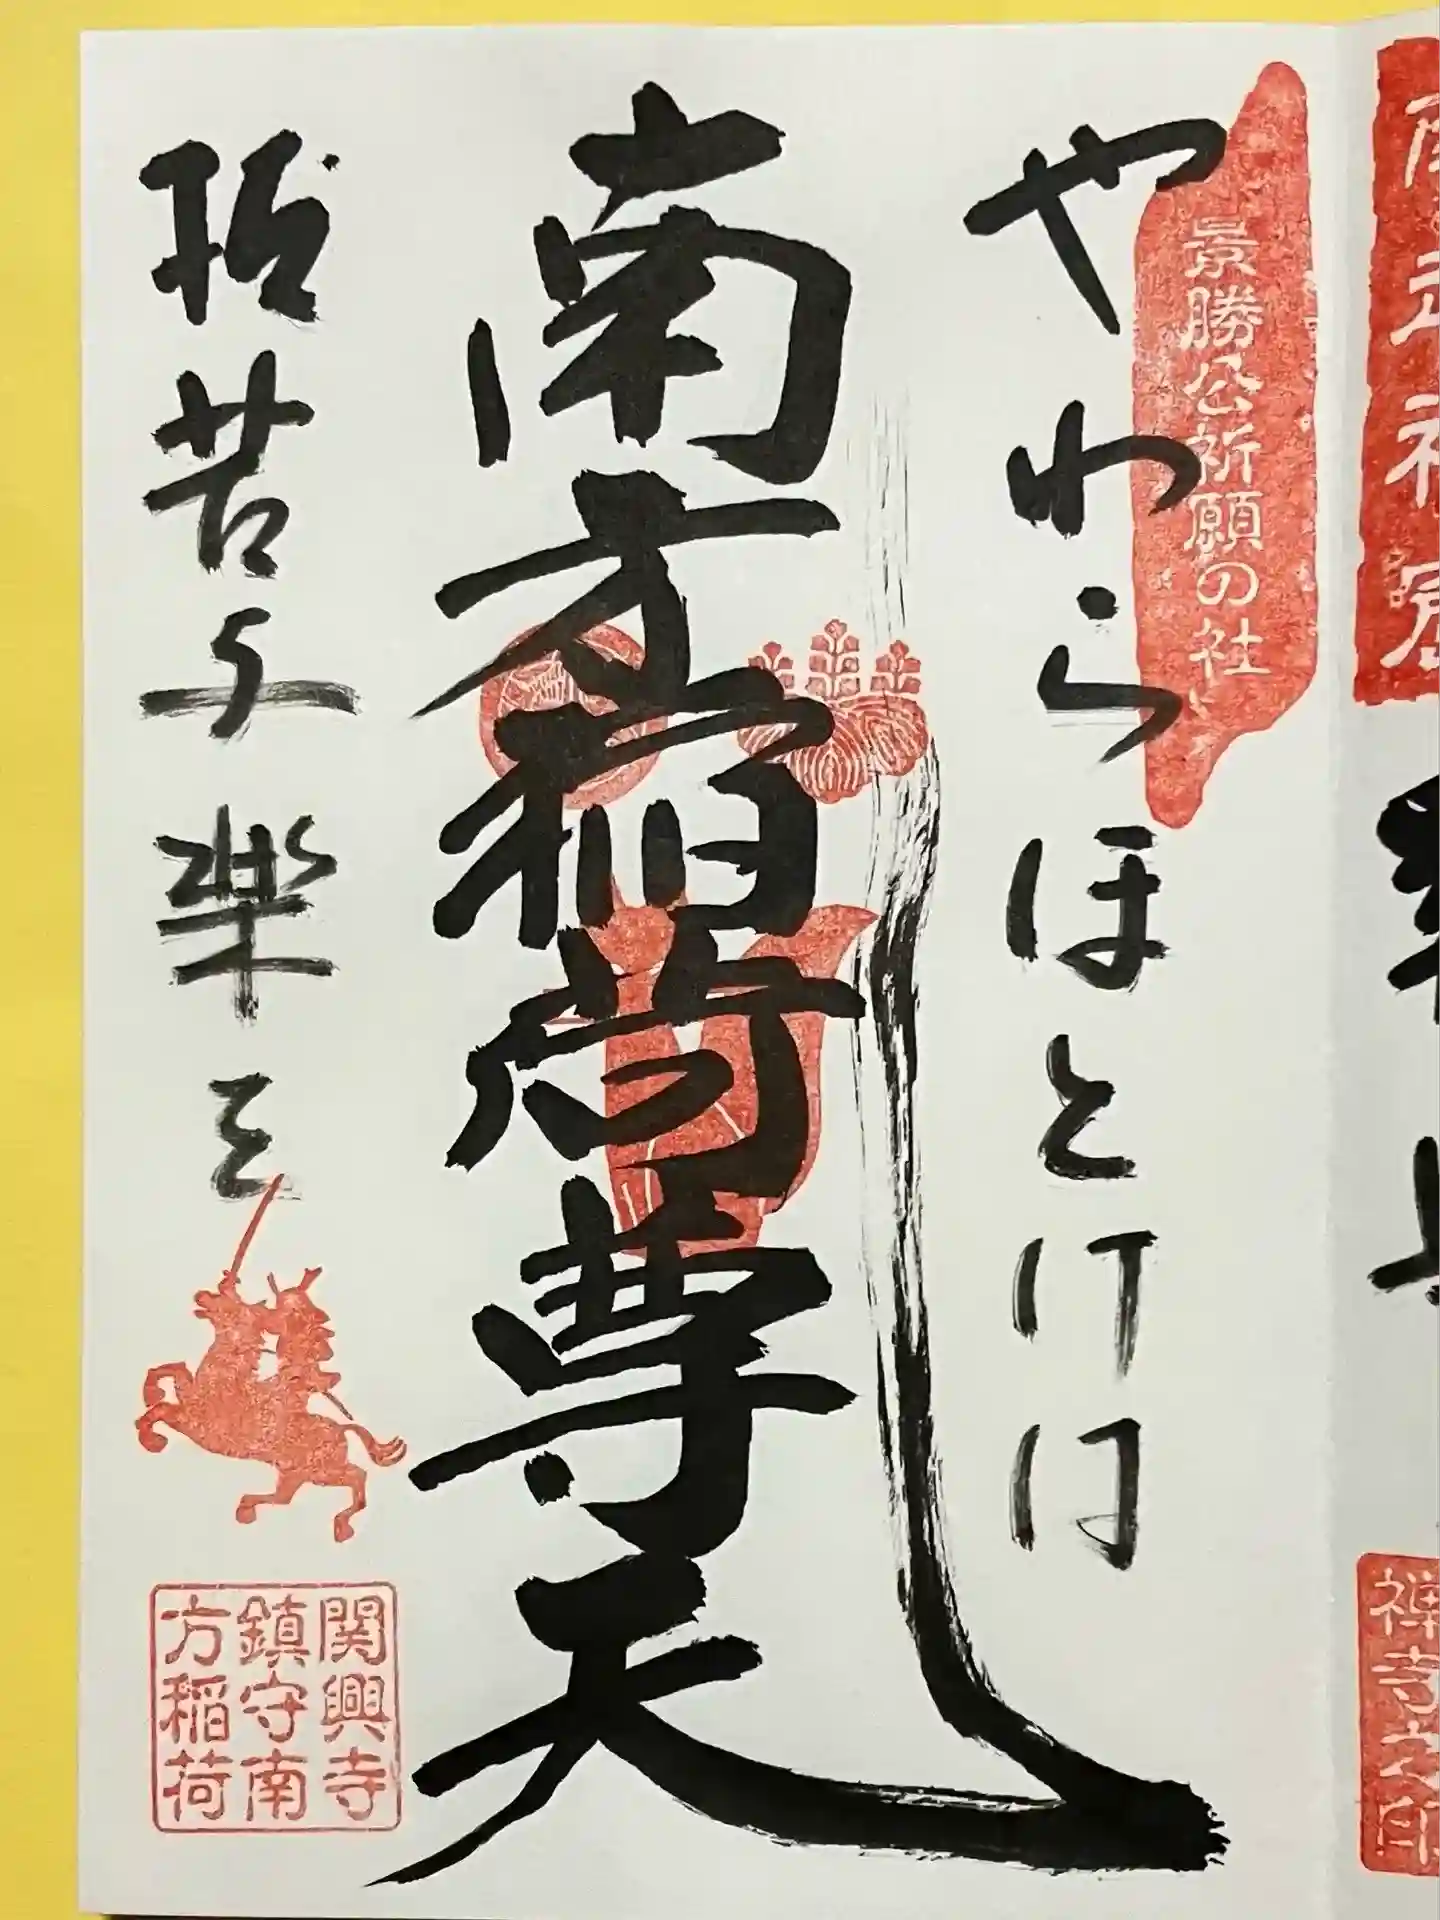 禅寺之印
景勝公祈願の社
やわらほとけは
南方稲荷尊天
抜苦与楽
関興寺
鎮守南
方稲荷